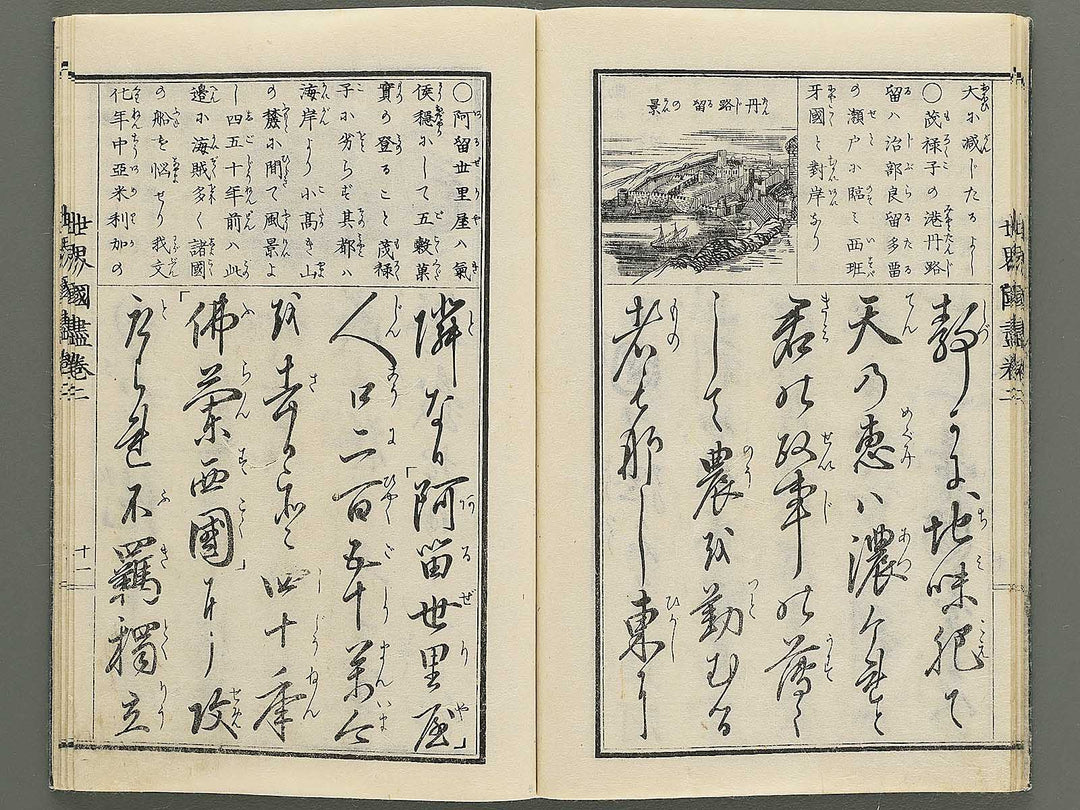 大に減じたるよし
〇茂禄子の港丹路
留ハ治部良留多留
の瀬戸に臨ミ西班
牙國と對岸なり
丹路留の景
静かに、地味肥て
天の恵ハ濃けれど
君の政事の薄く
して農を勤むる
者も那し東に
世界國盡巻二
〇阿留世里屋ハ氣
候穏にして五穀菓
實の登ること茂禄
子に劣らず其都ハ
海岸より小高き山
の麓に開て風景よ
し四五十年前ハ此
邊に海賊多く諸國
の船を悩せり我文
化年中亜米利加の
隣なる「阿留世里屋」
人口二百五十萬今
を去ること四十年
「佛蘭西國」に攻
取られ不羈獨立
世界國盡巻二
十一